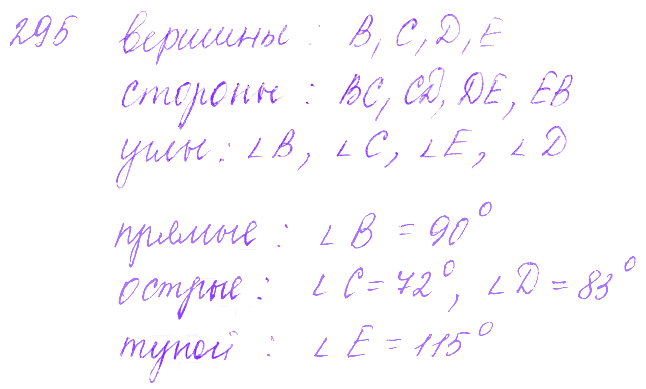 295 вершины: B, C, D, E
стороны: BC, CD, DE, EB
углы: ∠B, ∠C, ∠E, ∠D
прямые: ∠B = 90°
острые: ∠C = 72°, ∠D = 83°
тупой: ∠E = 115°